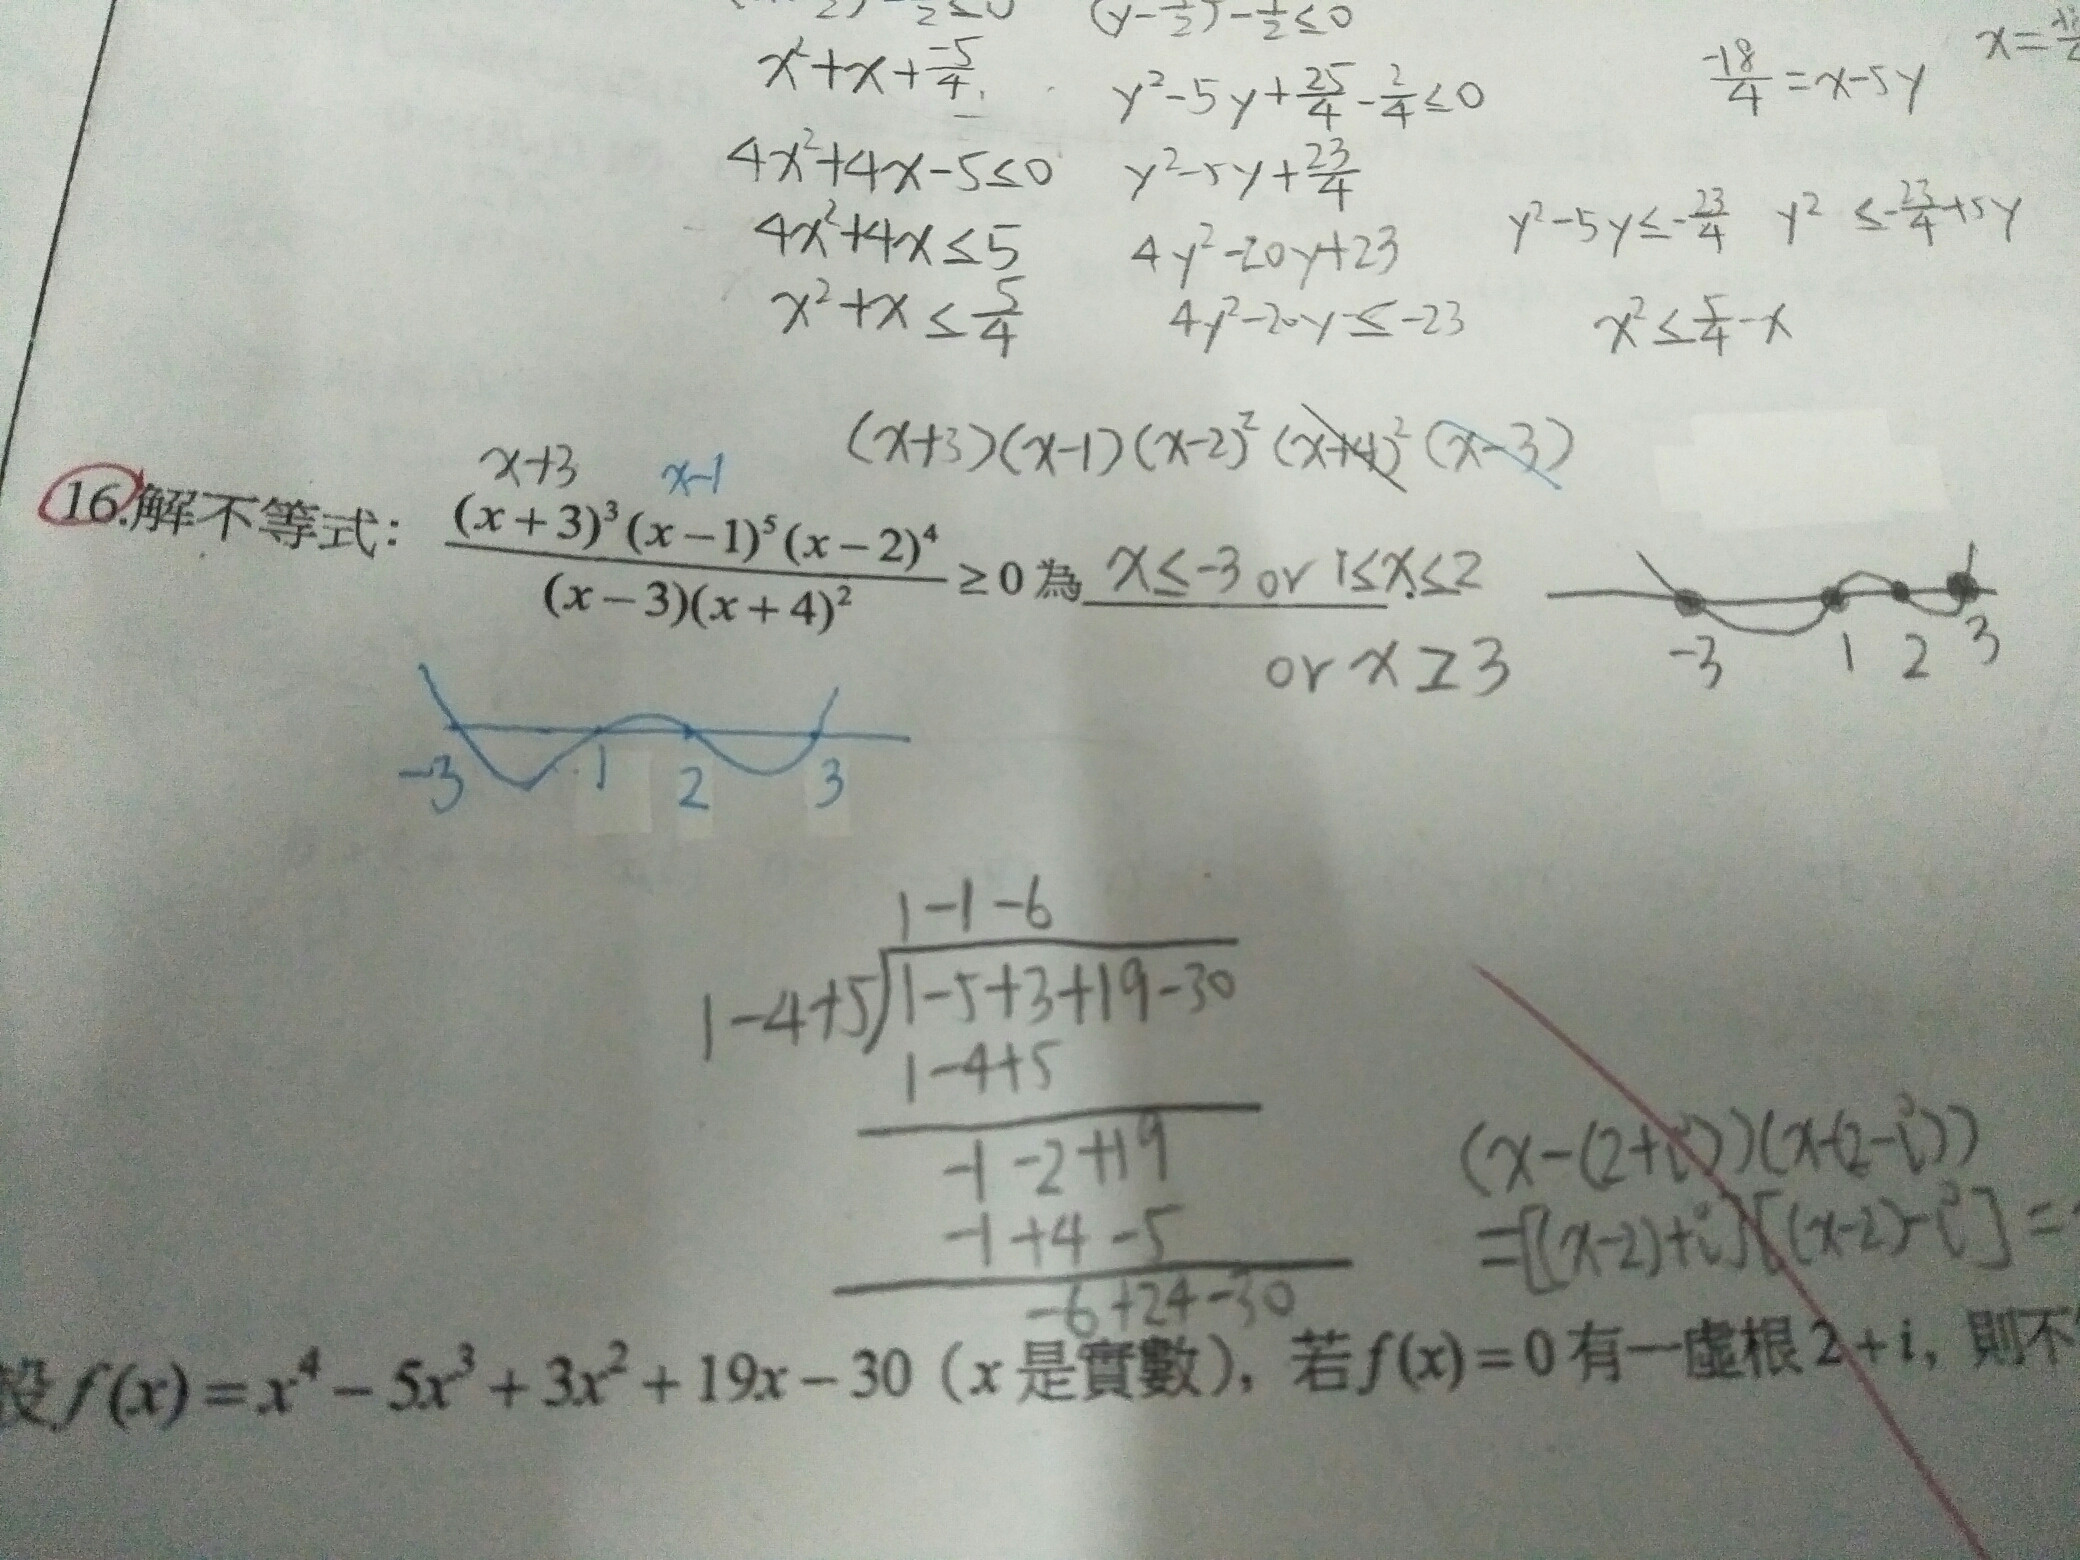 (y-1/2)-1/2≤0
x²+x+-5/4
y²-5y+25/4-2/4≤0
-18/4=x-5y
x=
4x²+4x-5≤0
y²-5y+23/4
4x²+4x≤5
4y²-20y+23
y²-5y≤-23/4
y²≤-23/4+5y
x²+x≤5/4
4y²-20y≤-23
x²≤5/4-x
(x+3)(x-1)(x-2)²(x+4)²(x-3)
x+3 x-1
16.解不等式: (x+3)³(x-1)⁵(x-2)⁴/(x-3)(x+4)²≥0為 x≤-3 or 1≤x≤2
or x≥3
-3 1 2 3
-3 1 2 3
1-1-6
1-4+5)1-5+3+19-30
1-4+5
-1-2+19
-1+4-5
-6+24-30
(x-(2+i))(x-(2-i))
=[(x-2)+i][(x-2)-i]=
設f(x)=x⁴-5x³+3x²+19x-30(x是實數),若f(x)=0有一虛根2+i,則不